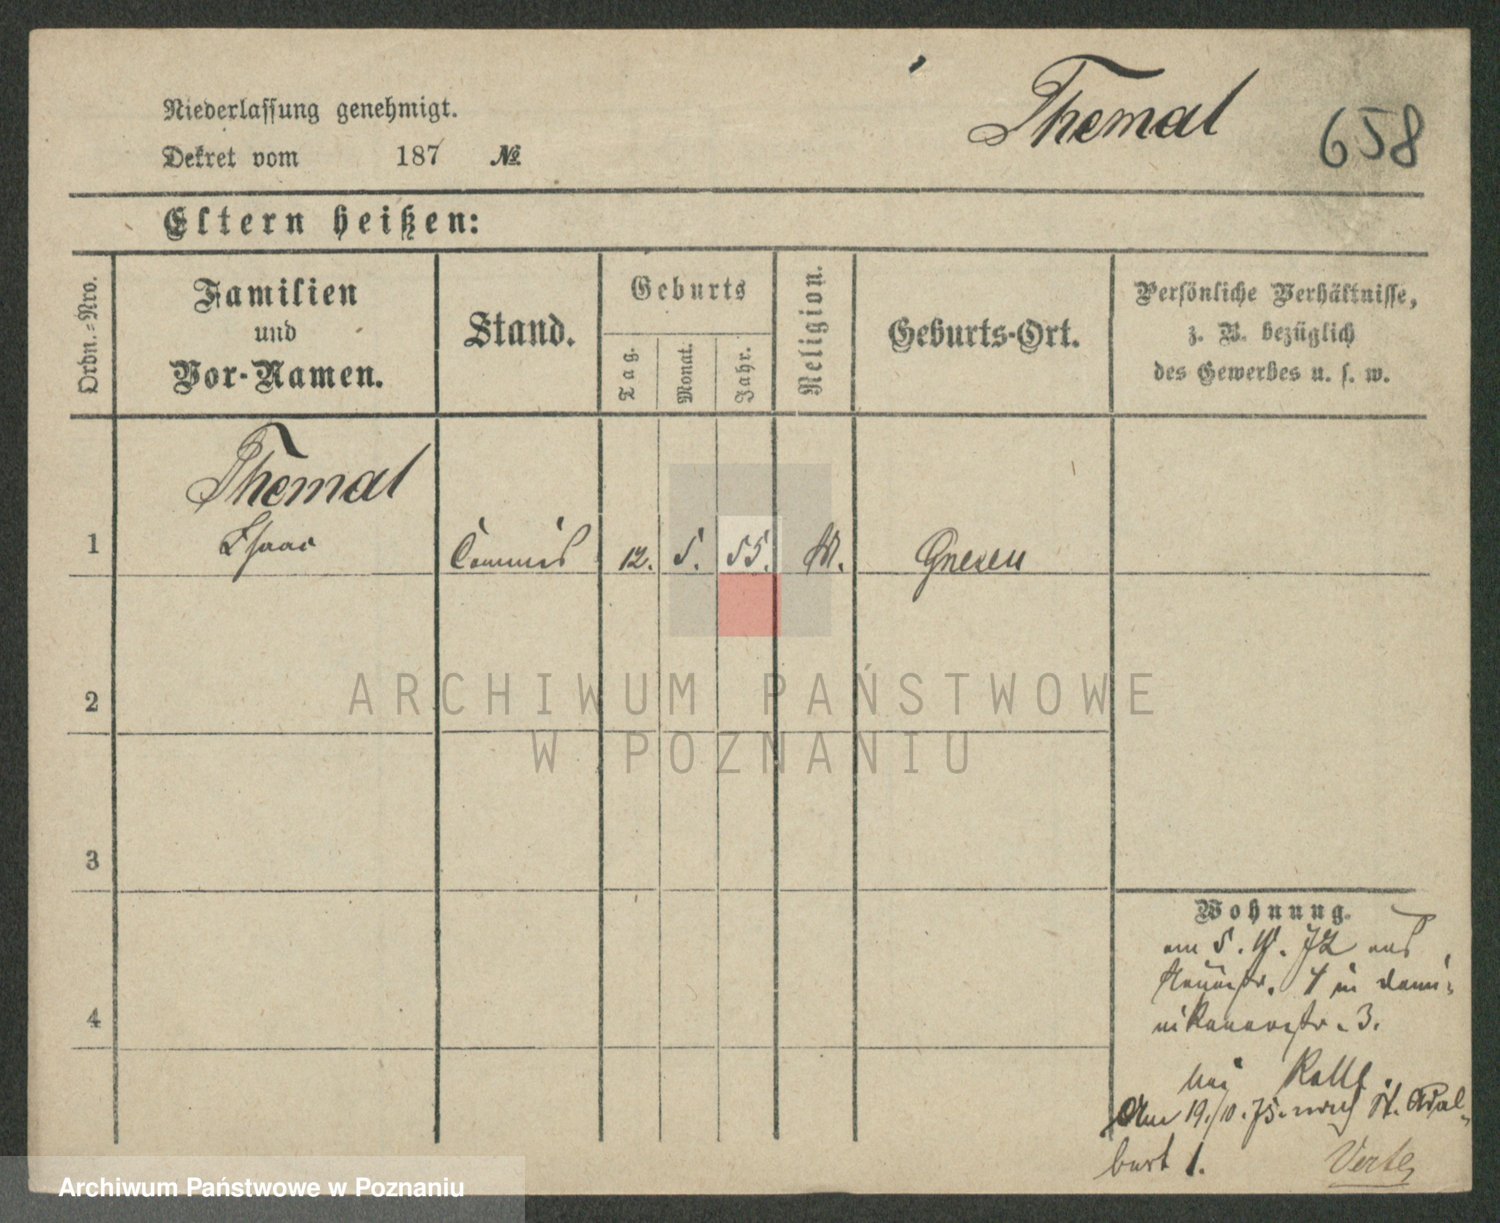 Niederlassung genehmigt.
Dekret vom 187 №
Themal
658
Eltern heißen:
Ordn.-Nro.
Familien
und
Vor-Namen.
Stand.
Geburts
Tag.
Monat.
Jahr.
Religion.
Geburts-Ort.
Persönliche Verhältnisse,
z. B. bezüglich
des Gewerbes u. s. w.
Themal
1 Isaac Commis 12. 5. 55. M. Gnesen
2
3
4
Wohnung.
am 5. 72 aus
4 in Domi-
nikanerstr. 3.
bei
Am 19./10. 75. nach St. Adal-
bert 1.
Verte
ARCHIWUM PAŃSTWOWE
W POZNANIU
Archiwum Państwowe w Poznaniu